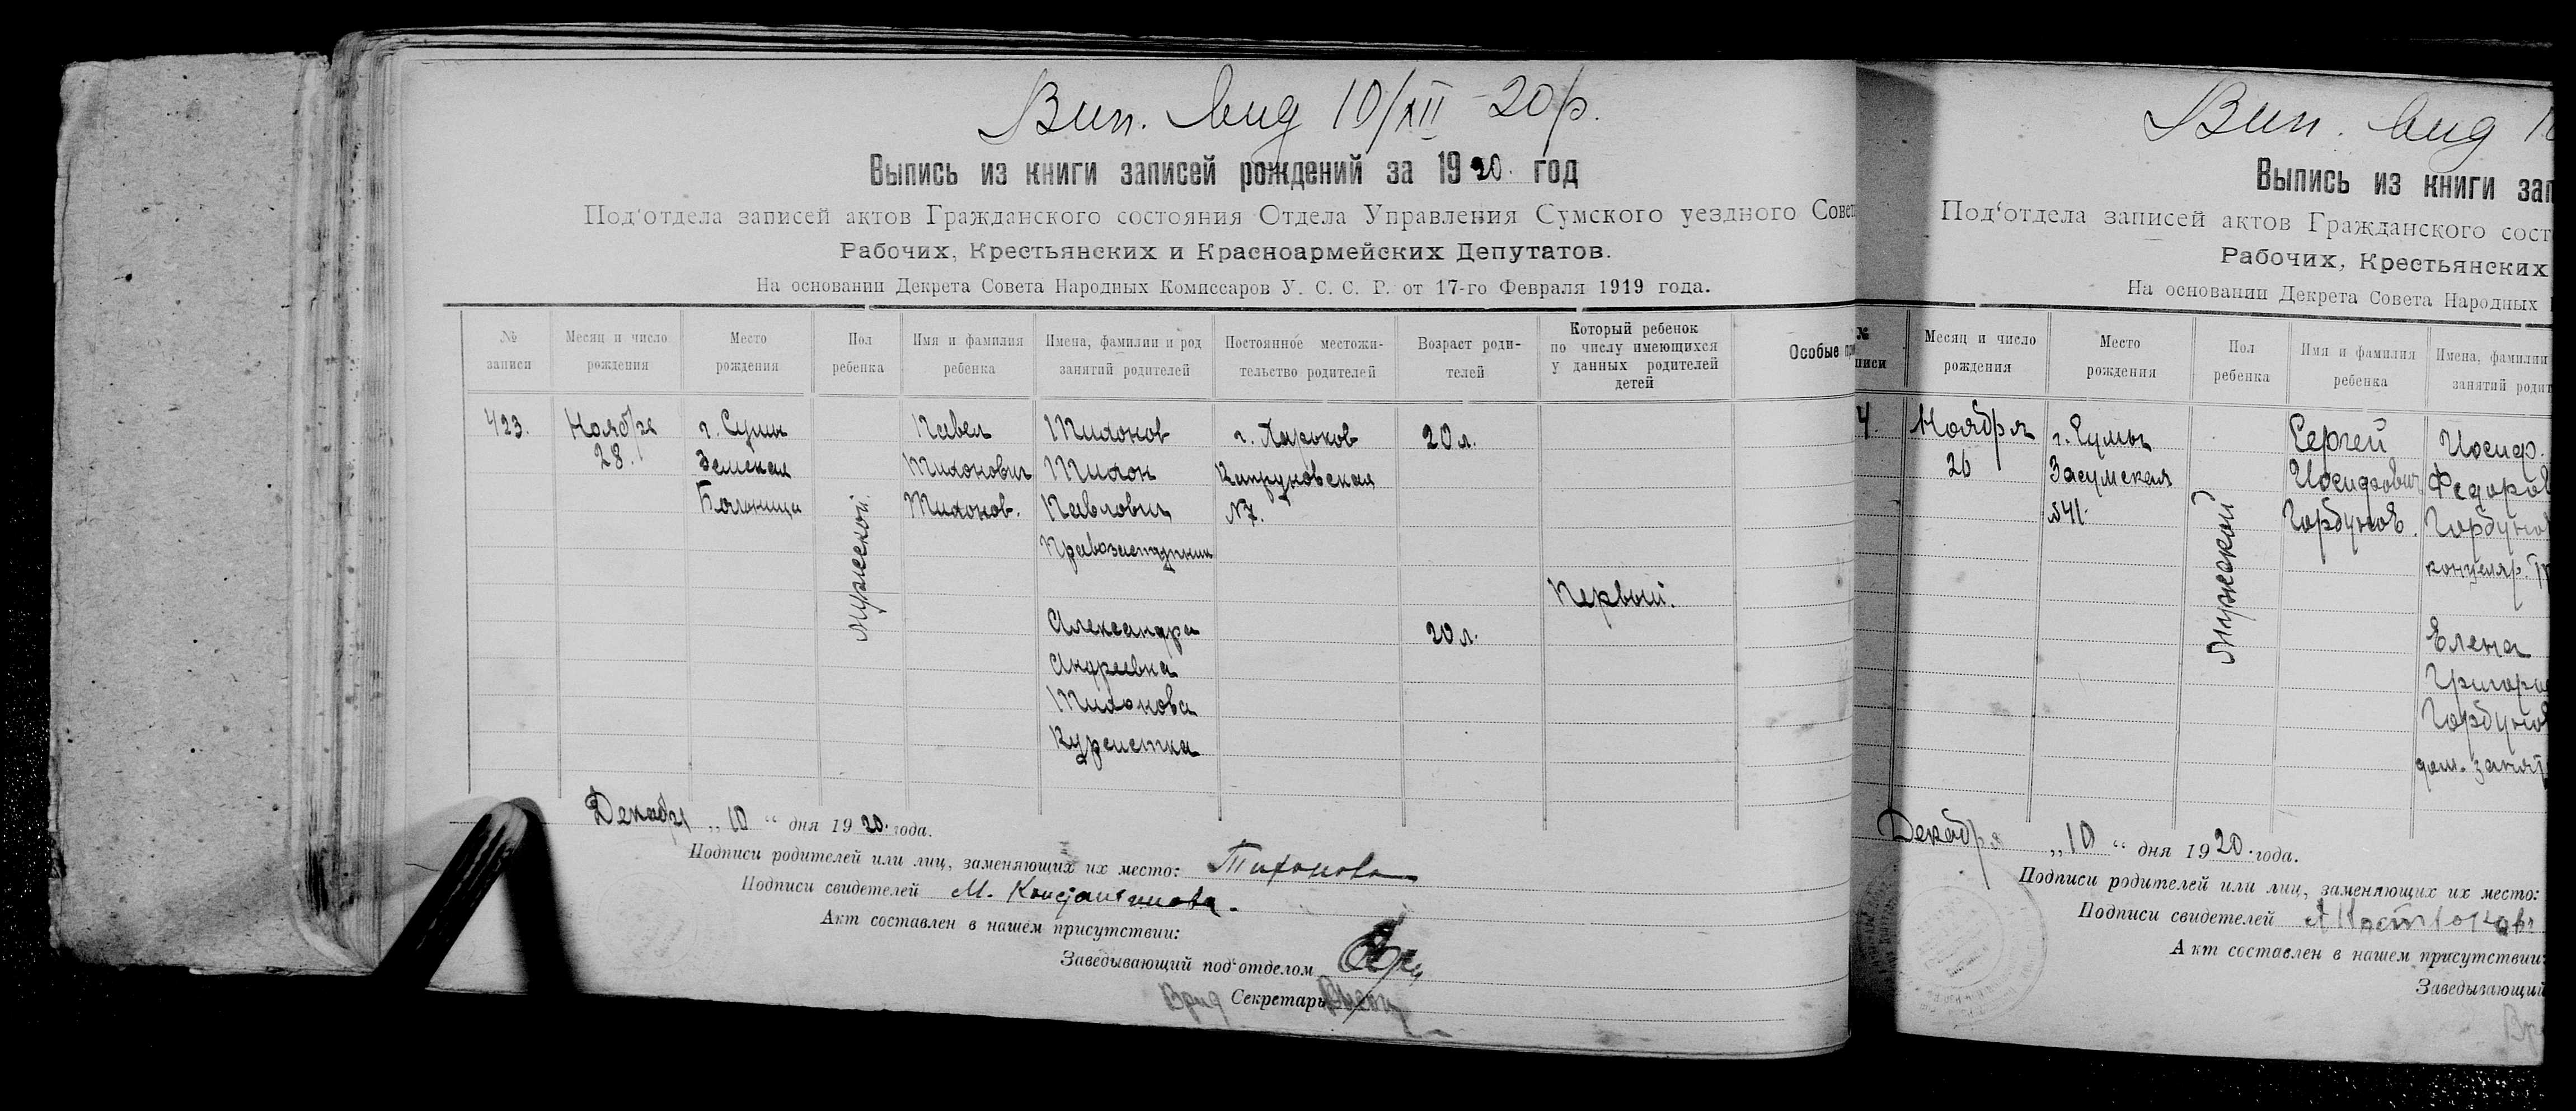 Вип. вид 10/XII 20 р.
Выпись из книги записей рождений за 1920. год
Под'отдела записей актов Гражданского состояния Отдела Управления Сумского уездного Сове
Рабочих, Крестьянских и Красноармейских Депутатов.
На основании Декрета Совета Народных Комиссаров У. С. С. Р. от 17-го Февраля 1919 года.
№ записи
Месяц и число рождения
Место рождения
Пол ребенка
Имя и фамилия ребенка
Имена, фамилии и род занятий родителей
Постоянное местожи-
тельство родителей
Возраст роди-
телей
Который ребенок
по числу имеющихся
у данных родителей
детей
Особые
423.
Ноября
28.
г. Сумы
Земская
Больница
Мужеской.
Павел
Тихонович
Тихонов.
Тихонов
Тихон
Павлович
Правозаступник
Александра
Андреевна
Тихонова
Курсистка
г. Харьков
№7.
20 л.
20 л.
Первый.
Декабря „10“ дня 1920. года.
Подписи родителей или лиц, заменяющих их место: Тихонова
Подписи свидетелей М. Константинова.
Акт составлен в нашем присутствии:
Заведывающий под'отделом
Врид Секретарь
Вип. вид 1
Выпись из книги зап
Под'отдела записей актов Гражданского сост
Рабочих, Крестьянских
На основании Декрета Совета Народных
№
писи
Месяц и число
рождения
Место
рождения
Пол
ребенка
Имя и фамилия
ребенка
Имена, фамилии
занятий родит
4.
Ноября
26
г. Сумы
Засумская
№41.
Мужской
Сергей
Иосифович
Горбунов.
Иосиф.
Федоров
Горбунов
канцеляр.
Елена
Григорье
Горбунов
дом. занят
Декабря „10“ дня 1920. года.
Подписи родителей или лиц, заменяющих их место:
Подписи свидетелей
Акт составлен в нашем присутствии:
Заведывающий